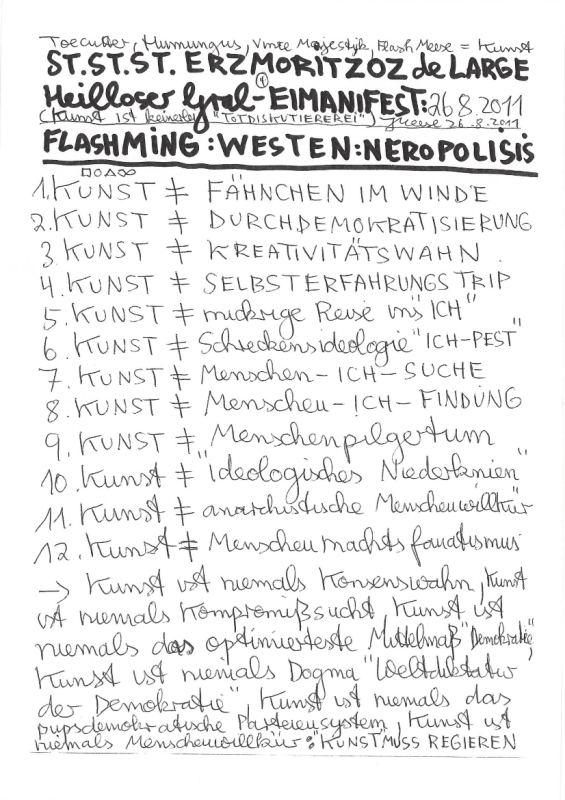 Toecutter, Humungus, Vinte Majestyk, Flash Meese = Kunst
ST.ST.ST. ERZMORITZOZ de LARGE
Heilloser Gral-EIMANIFEST: 26.8.2011
①
(Kunst ist keinerlei "TOTDISKUTIEREREI") JMeese 26.8.2011
FLASHMING:WESTEN:NEROPOLISIS
□○△∞
1. KUNST ≠ FÄHNCHEN IM WINDE
2. KUNST ≠ DURCHDEMOKRATISIERUNG
3. KUNST ≠ KREATIVITÄTSWAHN.
4. KUNST ≠ SELBSTERFAHRUNGSTRIP
5. KUNST ≠ mickrige Reise ins "ICH"
6. KUNST ≠ Schreckensideologie "ICH-PEST"
7. KUNST ≠ Menschen-ICH-SUCHE
8. KUNST ≠ Menschen-ICH-FINDUNG
9. KUNST ≠ Menschenpilgertum
10. Kunst ≠ "ideologisches Niederknien"
11. Kunst ≠ anarchistische Menschenwillkür
12. Kunst ≠ Menschenmachtsfanatismus
→ Kunst ist niemals Konsenswahn, Kunst
ist niemals Kompromißsucht, Kunst ist
niemals das optimierteste Mittelmaß "Demokratie",
Kunst ist niemals Dogma "Weltdiktatur
der Demokratie", Kunst ist niemals das
pupsdemokratische Parteiensystem, Kunst ist
niemals Menschenwillkür: "KUNST" MUSS REGIEREN